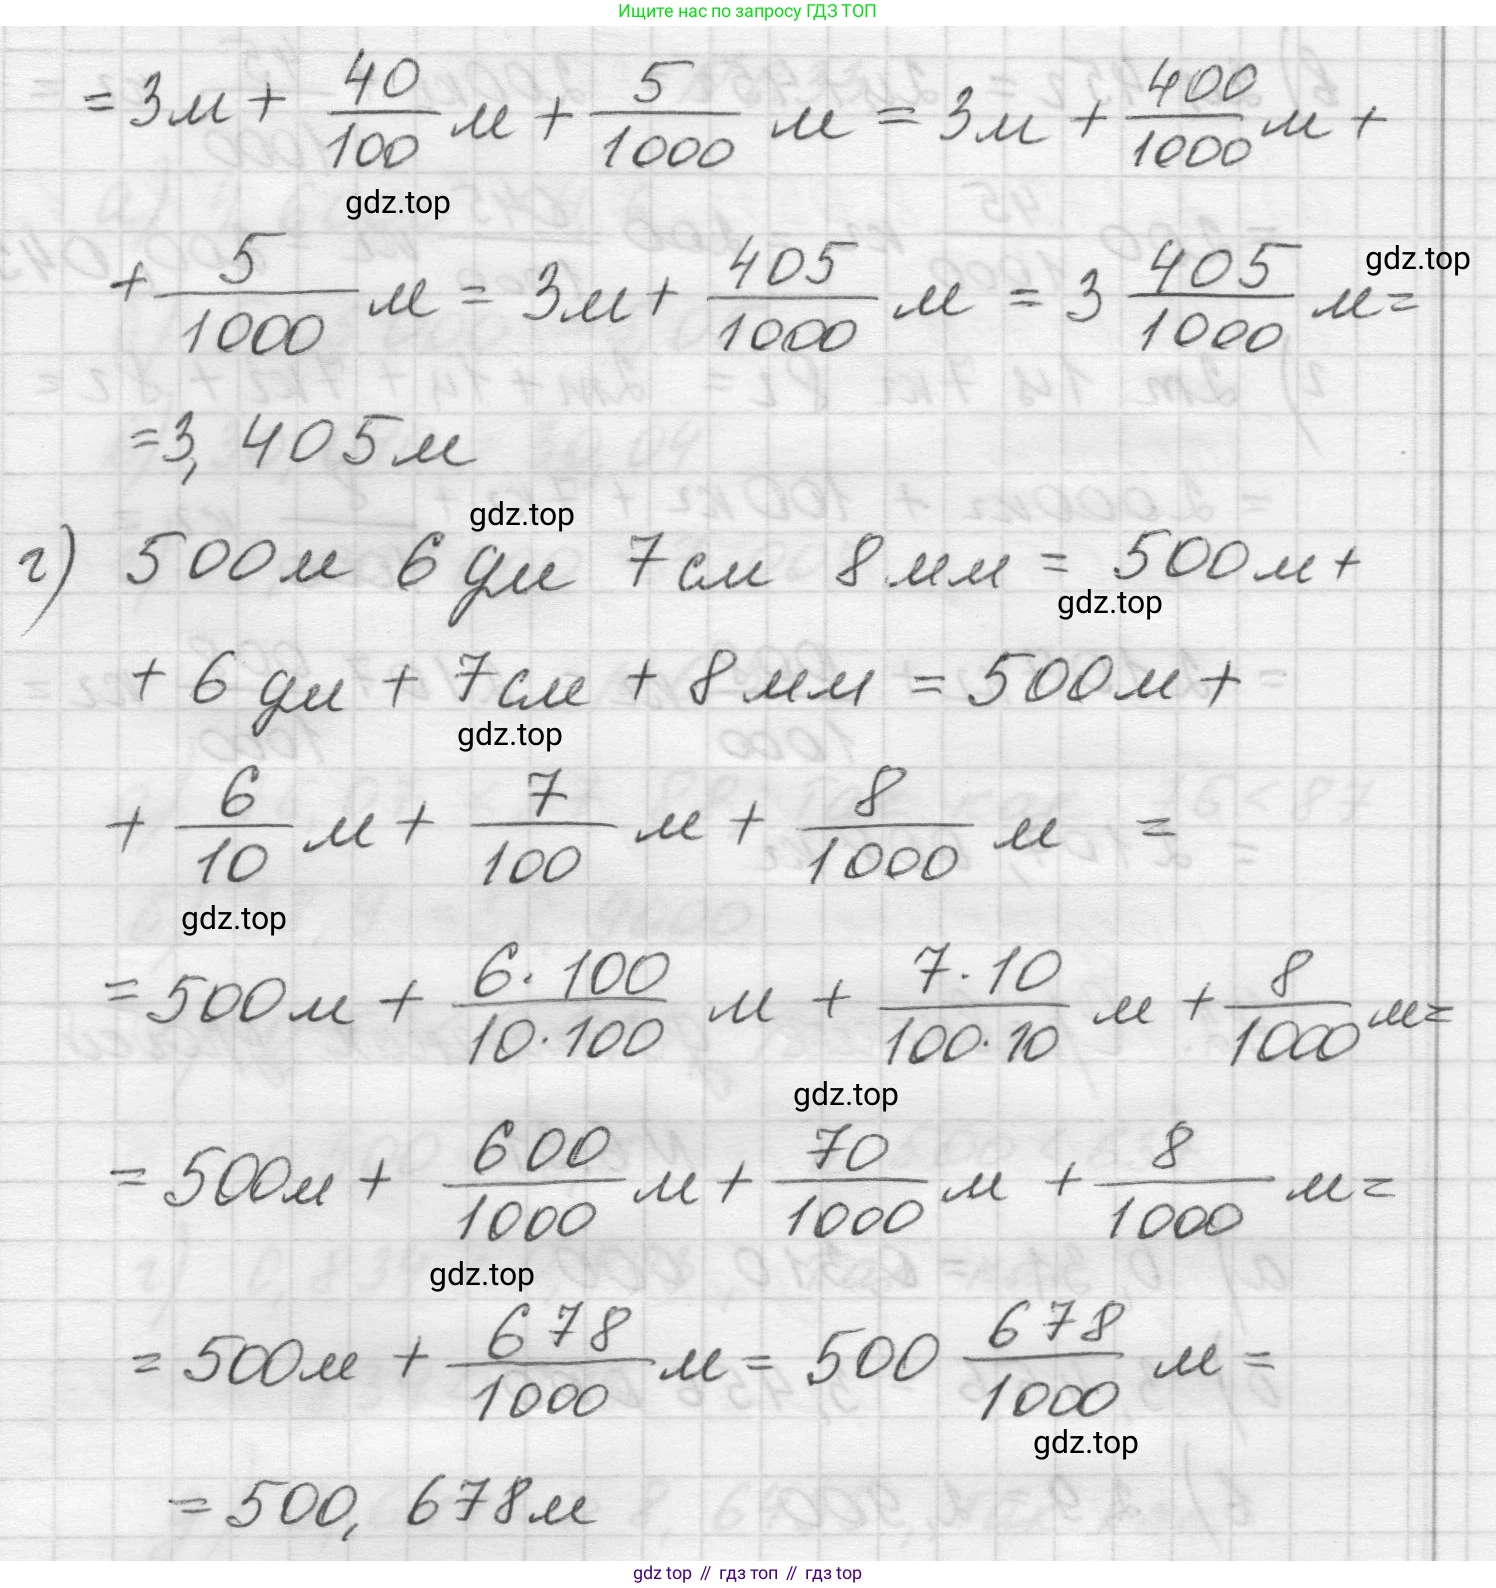 Ищите нас по запросу ГДЗ ТОП
= 3м + 40/100 м + 5/1000 м = 3м + 400/1000 м +
gdz.top
+ 5/1000 м = 3м + 405/1000 м = 3 405/1000 м =
gdz.top
= 3,405м
gdz.top
г) 500м 6дм 7см 8мм = 500м +
gdz.top
+ 6дм + 7см + 8мм = 500м +
gdz.top
+ 6/10 м + 7/100 м + 8/1000 м =
gdz.top
= 500м + 6·100/10·100 м + 7·10/100·10 м + 8/1000 м =
gdz.top
= 500м + 600/1000 м + 70/1000 м + 8/1000 м =
gdz.top
= 500м + 678/1000 м = 500 678/1000 м =
gdz.top
= 500,678м
gdz top // гдз топ // гдз top